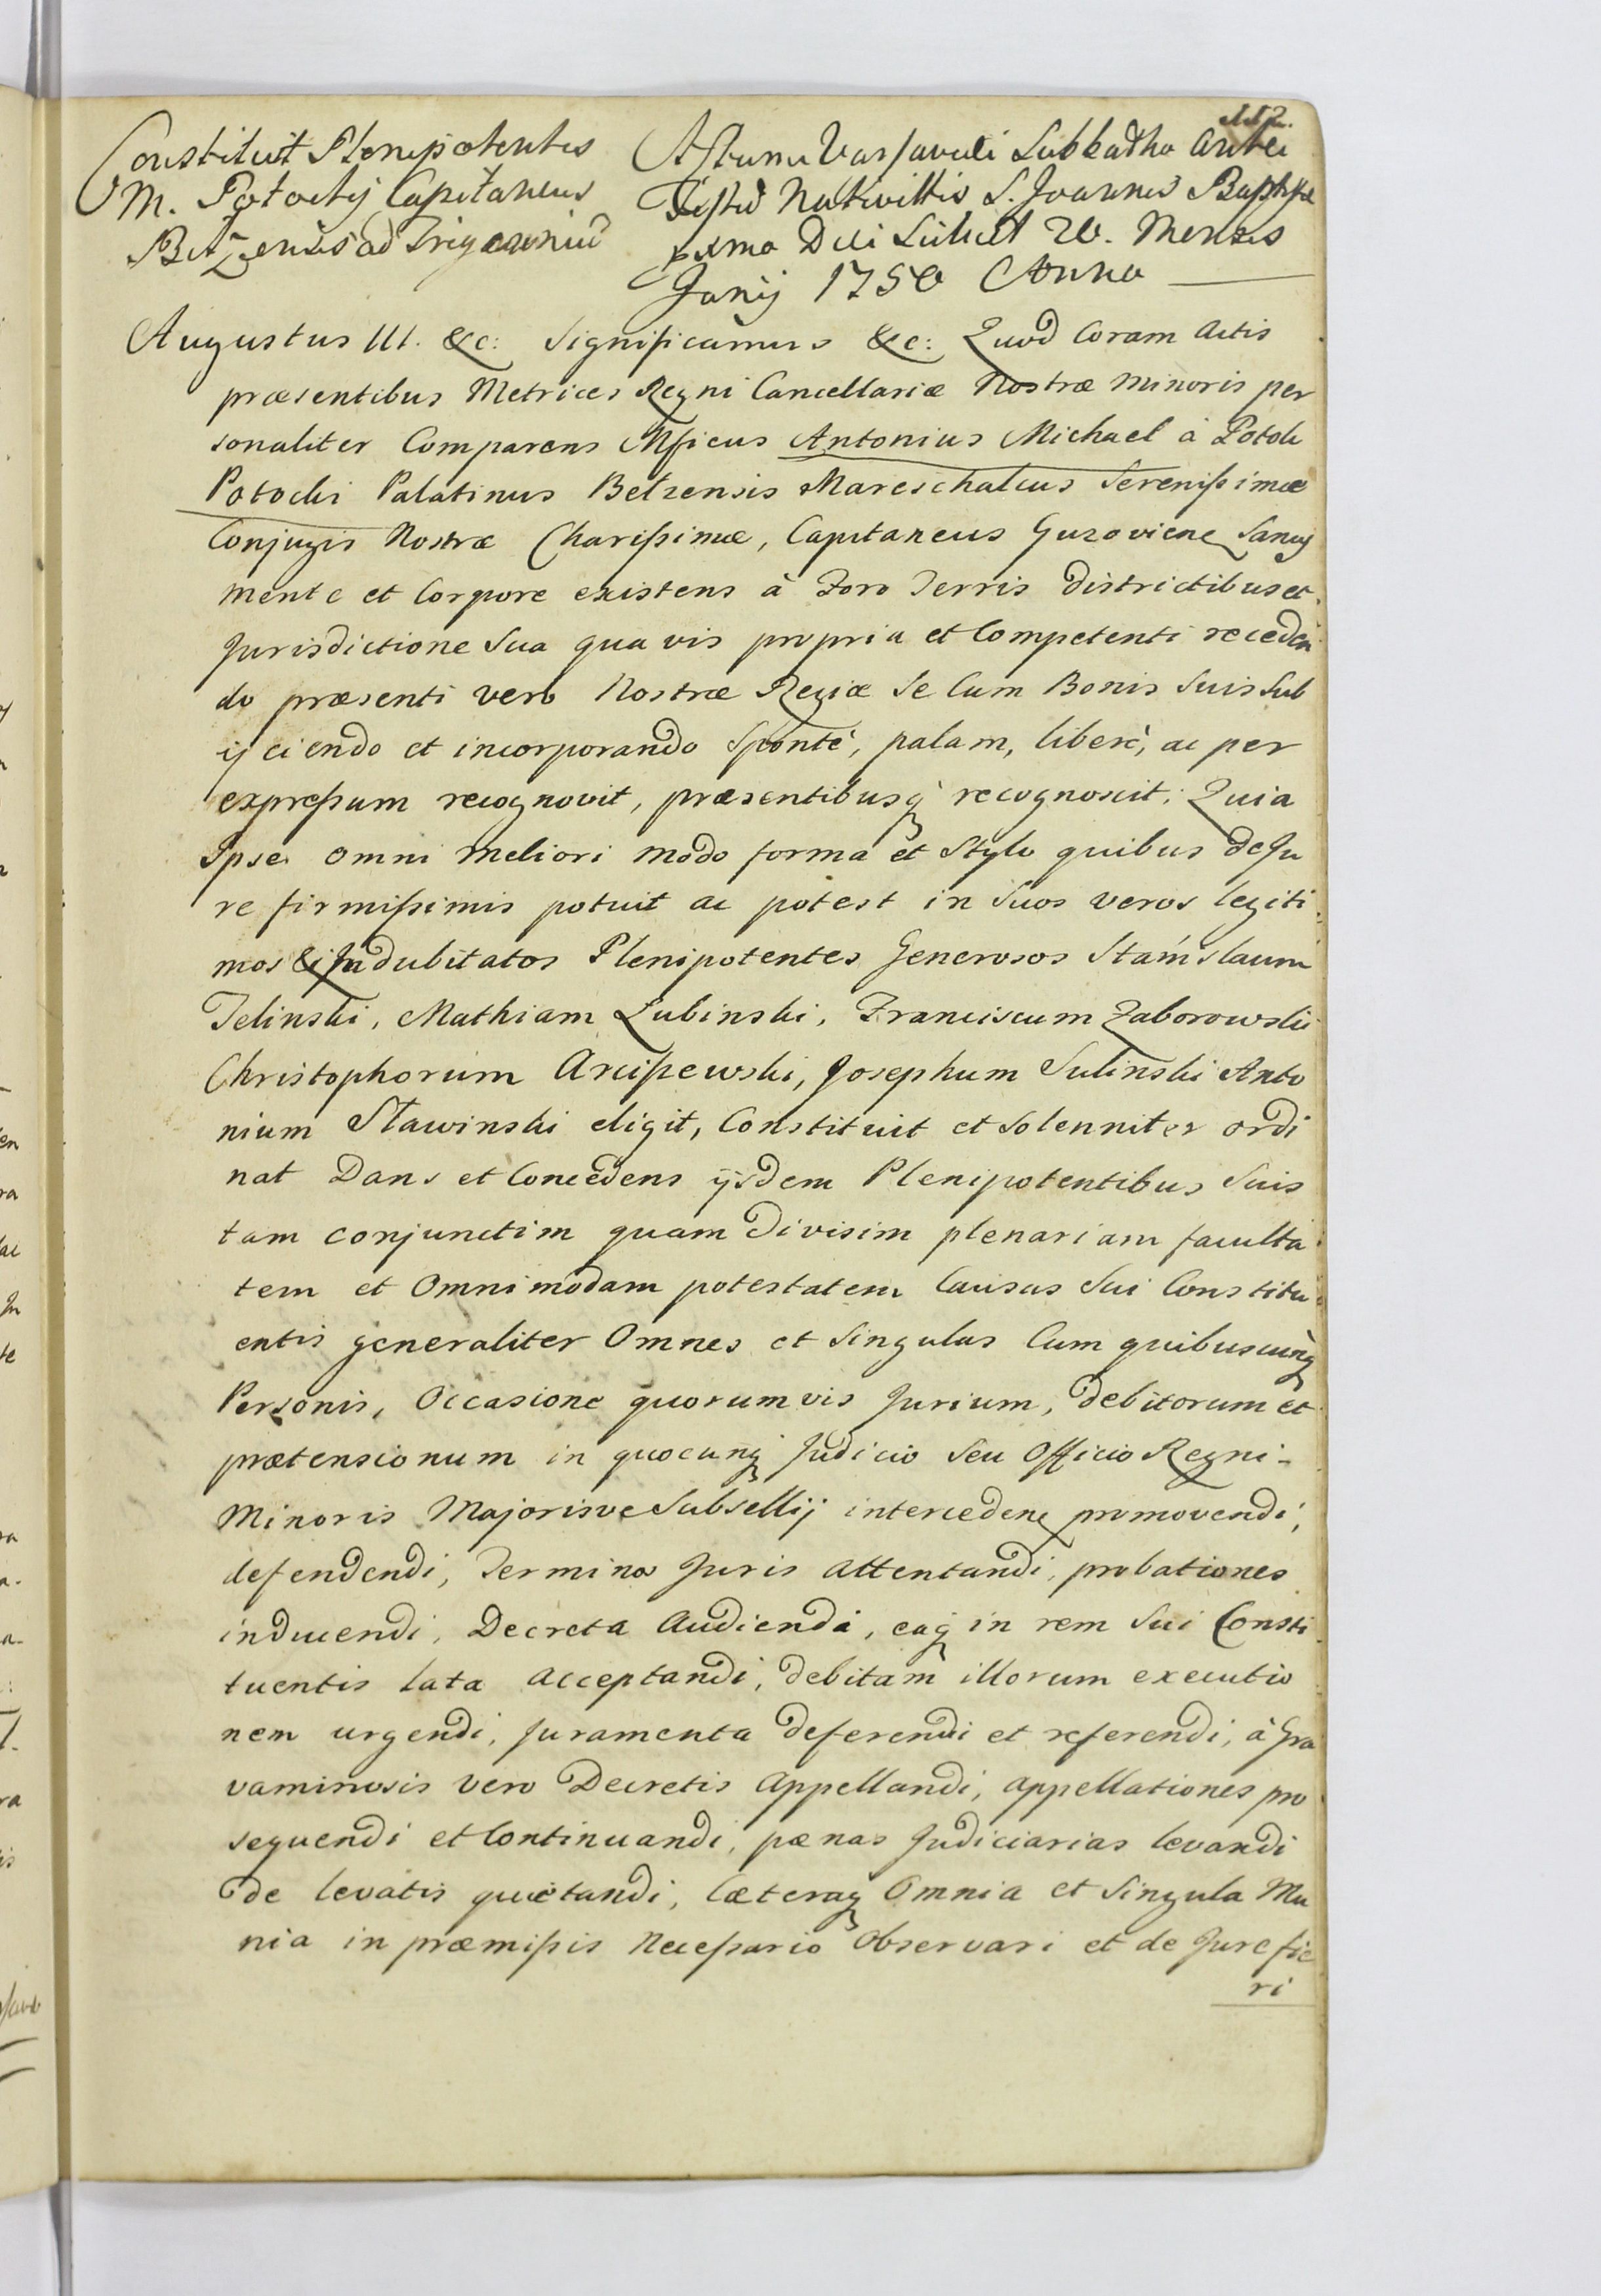 Constituit Plenipotentes
M. Potocky Capitaneus
Belzensis ad
Actum Varsaviæ Sabbatho Ante
Festū Nativittis S. Joannis Baptistæ
pxmo Die Scilicet 20. Mensis
Junij 1750 Anno
Augustus III. &c: Significamus &c: Quod Coram Actis
præsentibus Metrices Regni Cancellariæ Nostræ Minoris per
sonaliter Comparens Mficus Antonius Michael à Potok
Potocki Palatinus Belzensis Mareschalcus Serenissimæ
Conjugis Nostræ Charissimæ, Capitaneus Guzoviens Sanus
mente et Corpore existens à Foro Terris Districtibus et
Jurisdictione Sua qua vis propria et Competenti receden
do præsenti vero Nostræ Regiæ Se Cum Bonis Suis Sub
ijciendo et incorporando Spontè, palam, liberè, ac per
expressum recognovit, præsentibusq recognoscit; Quia
Ipse Omni Meliori Modo forma et Stylo quibus de Ju
re firmissimis potuit ac potest in Suos veros legiti
mos & Indubitatos Plenipotentes Generosos Stanislaum
Jelinski, Mathiam Lubinski, Franciscum Zaborowski
Christophorum Arcissewski, Josephum Sulinski Anto
nium Sławinski eligit, Constituit et Solenniter ordi
nat Dans et Concedens ijsdem Plenipotentibus Suis
tam conjunctim quam Divisim plenariam faculta
tem et Omnimodam potestatem Causas Sui Constitu
entis generaliter Omnes et Singulas Cum quibuscunq
Personis, Occasione quorumvis Jurium, debitorum et
prætensionum in quocunq Judicio Seu Officio Regni
Minoris Majorisve Subsellij intercedene promovendi,
defendendi, Terminos Juris Attentandi, probationes
inducendi, Decreta Audiendi, eaq in rem Sui Consti
tuentis lata Acceptandi, debitam illorum executio
nem urgendi, Juramenta deferendi et referendi, à Gra
vaminosis vero Decretis Appellandi, Appellationes pro
sequendi et Continuandi, pænas Judiciarias levandi
de levatis quietandi, Cæteraq Omnia et Singula Mu
nia in præmissis Necessario Observari et de Jure fie
ri